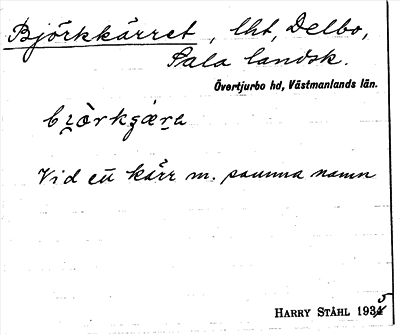 Björkkärret, lht, Delbo,
Sala landsk.
Övertjurbo hd, Västmanlands län.
bjòrkgæ̀ra
Vid ett kärr m. samma namn
HARRY STÅHL 1935